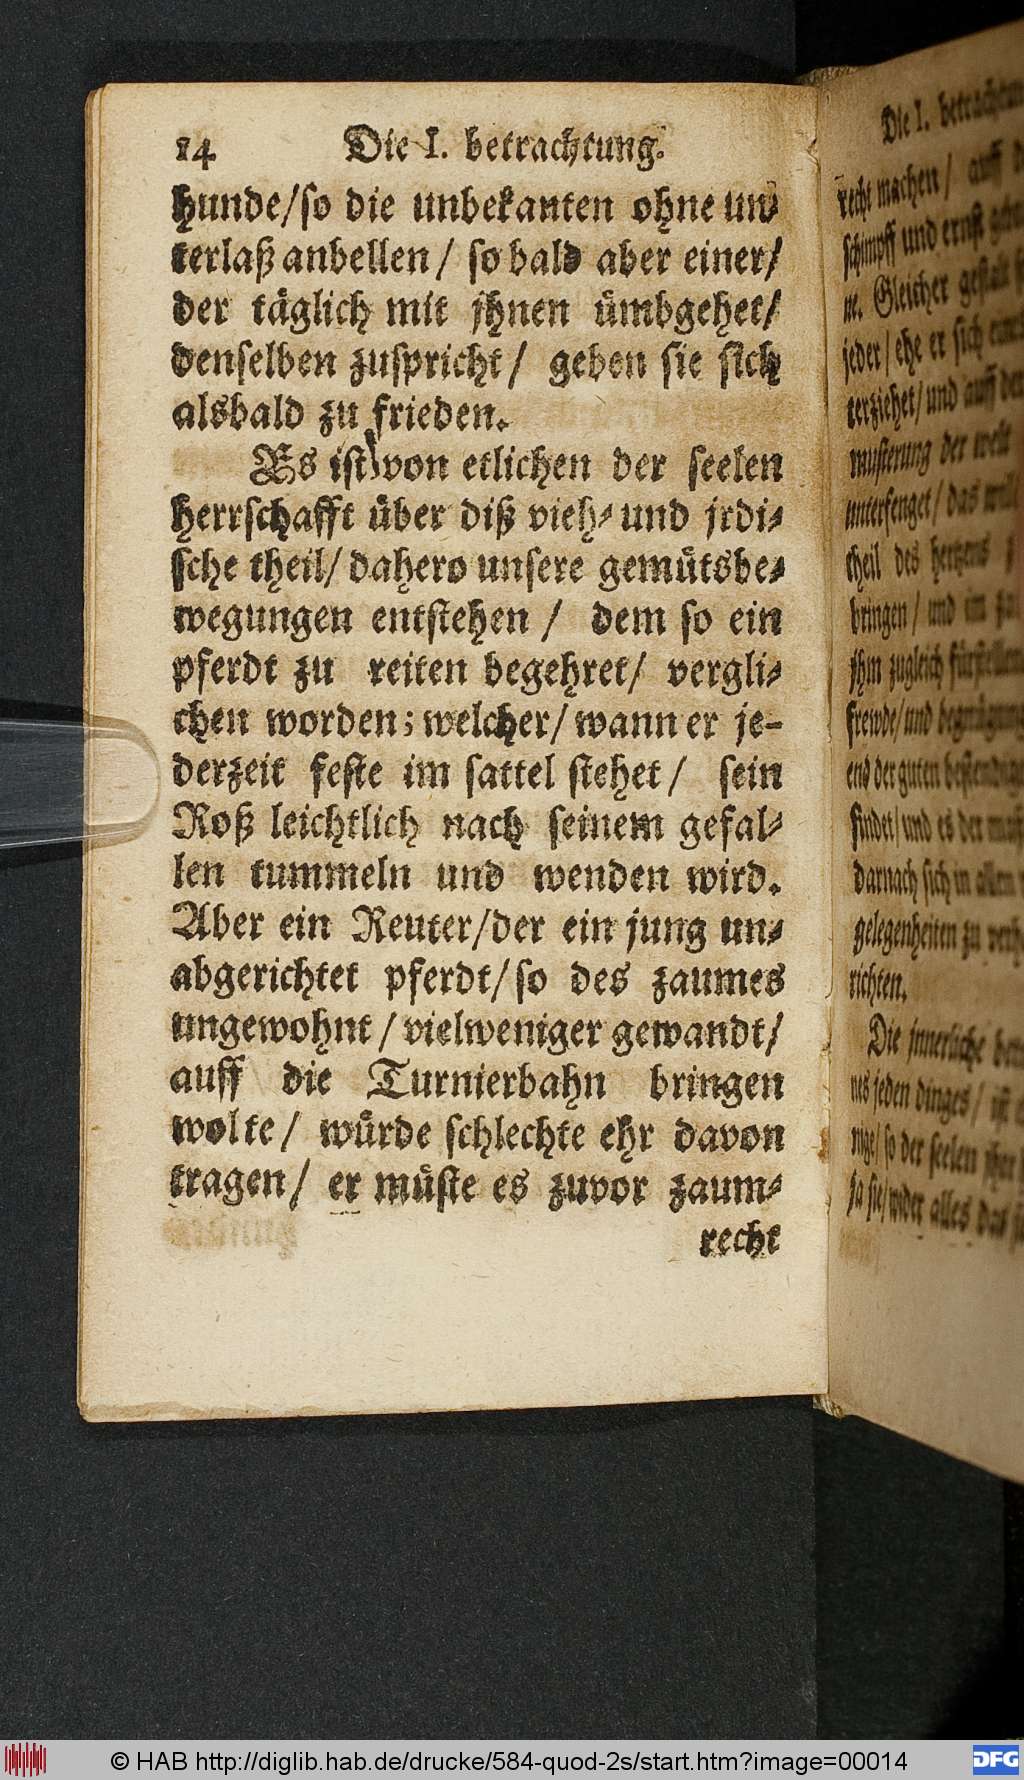 14 Die I. betrachtung.
hunde/so die unbekanten ohne un⸗
terlaß anbellen / so bald aber einer/
der täglich mit jhnen ümbgehet/
denselben zuspricht / geben sie sich
alsbald zu frieden.
Es ist von etlichen der seelen
herrschafft über diß vieh⸗ und jrdi⸗
sche theil/ dahero unsere gemütsbe⸗
wegungen entstehen / dem so ein
pferdt zu reiten begehret/ vergli⸗
chen worden; welcher/ wann er je-
derzeit feste im sattel stehet / sein
Roß leichtlich nach seinem gefal⸗
len tummeln und wenden wird.
Aber ein Reuter/der ein jung un⸗
abgerichtet pferdt/so des zaumes
ungewohnt / vielweniger gewandt/
auff die Turnierbahn bringen
wolte / würde schlechte ehr davon
tragen/ er müste es zuvor zaum⸗
recht
Die I.
recht machen / auff
schimpff und ernst
ne. Gleicher gestalt
jeder / ehe er sich
terziehet/und auff
musterung der welt
unterfenget / das
theil des hertzens
bringen / und im
jhm zugleich
frewde/und
end der guten
findet/ und es der
darnach sich in allen
gelegenheiten zu
richten.
Die jnnerliche
nes jeden dinges / ist
nige/ so der seelen jhre
sie/wider alles das
© HAB http://diglib.hab.de/drucke/584-quod-2s/start.htm?image=00014
DFG